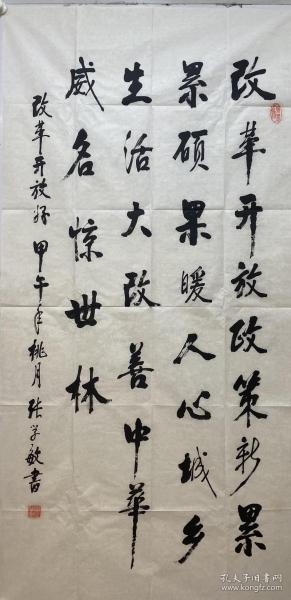 改革开放政策新累
累硕果暖人心城乡
生活大改善中华
威名惊世林
改革开放好 甲午年桃月 张学敏书
孔夫子旧书网
kongfz.com